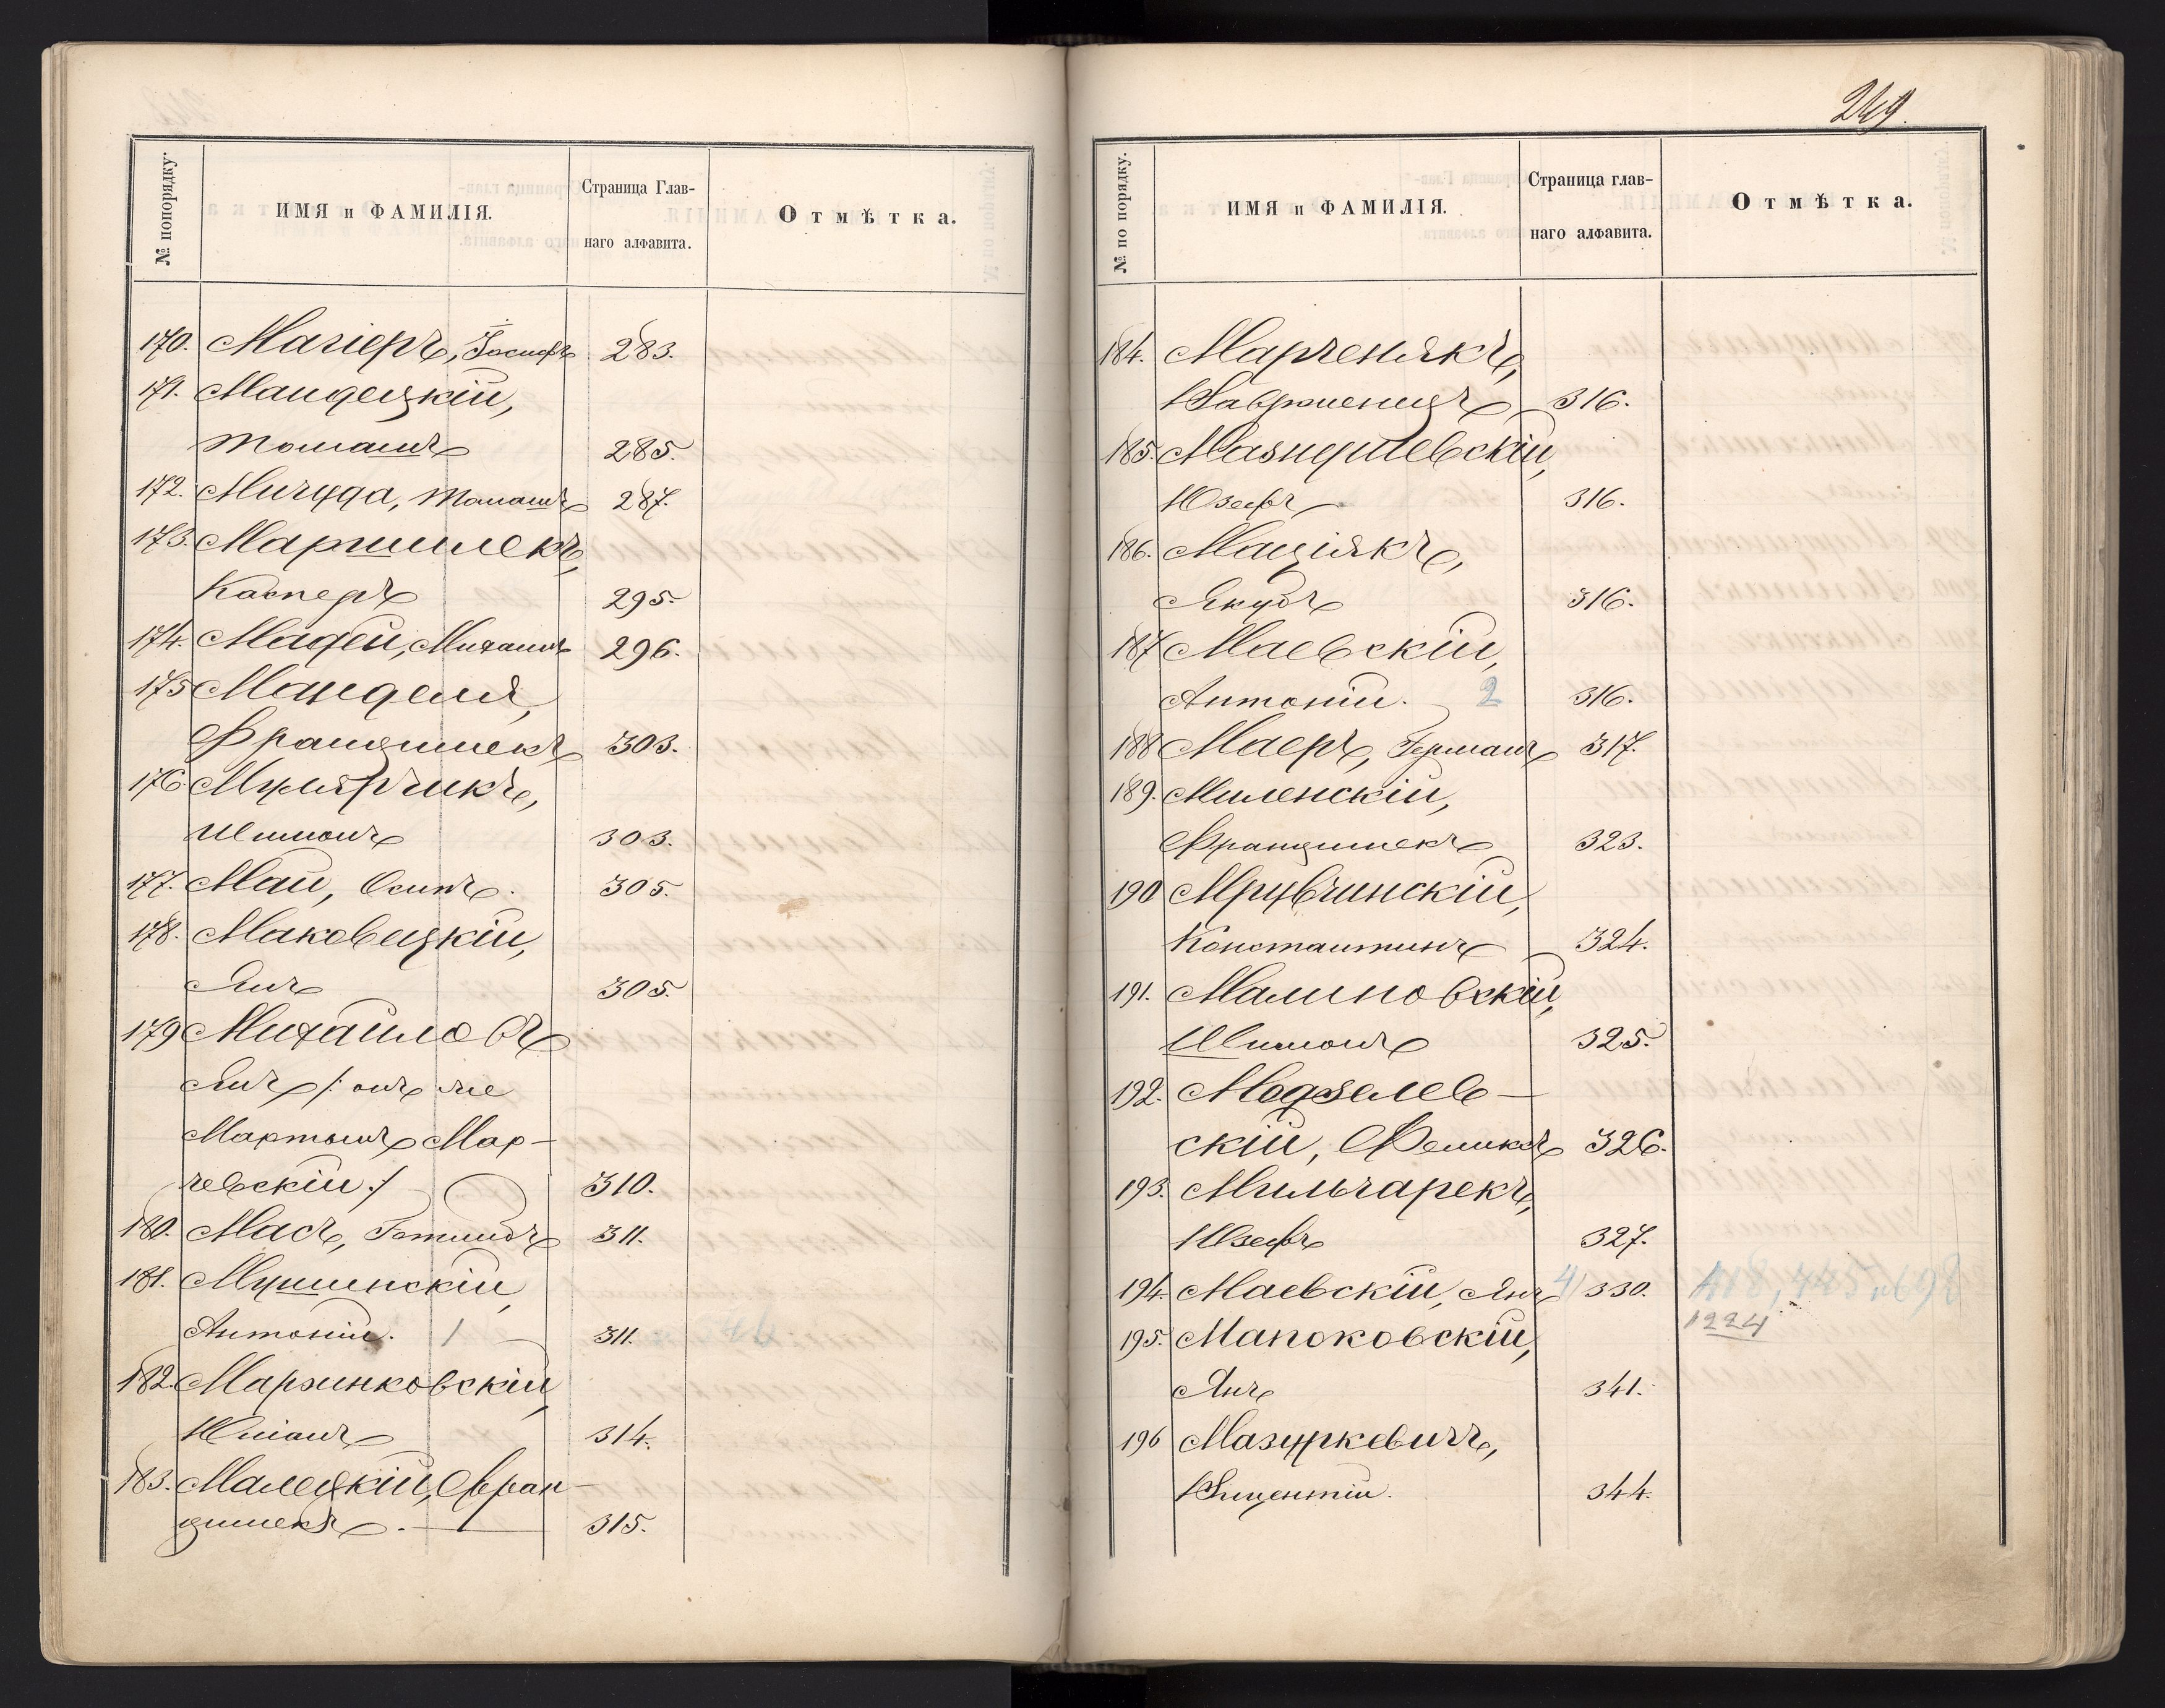 № попорядку.
ИМЯ и ФАМИЛІЯ.
Страница Глав-
наго алфавита.
Отмѣтка.
170. Магіеръ, Іосифъ 283.
171. Мандецкій,
Томашъ 285.
172. Мигуда, Томашъ 287.
173. Маршилекъ,
Касперъ 295.
174. Мадей, Михаилъ 296.
175 Манделя,
Францишекъ 303.
176. Мулярчикъ,
Шимонъ 303.
177. Май, Осипъ. 305.
178. Маковецкій,
Янъ 305.
179 Михайловъ
Янъ /: онъ же
Мартынъ Мар-
чевскій :/ 310.
180. Масъ, Готлибъ 311.
181. Мушинскій,
Антоній. 1 311.
182. Мархинковскій,
Юліанъ 314.
183. Малецкій, Фран-
цишекъ. 315.
249.
№ по порядку.
ИМЯ и ФАМИЛІЯ.
Страница глав-
наго алфавита.
Отмѣтка.
184. Марченякъ,
Вавржинецъ 316.
185. Мазнушевскій,
Юзефъ 316.
186. Маціякъ,
Якубъ 316.
187 Маевскій,
Антоній. 2 316.
188 Маеръ, Германъ 317.
189. Миленскій,
Францишекъ 323.
190 Мрувчинскій,
Константинъ 324.
191. Малиновскій,
Шимонъ 325.
192. Модзелев-
скій, Феликсъ 326.
193. Мильчарекъ,
Юзефъ 327.
194. Маевскій, Янъ 4) 330. 418, 445, 698
1224
195. Мапоковскій,
Янъ 341.
196 Мазуркевичъ,
Викентій. 344.